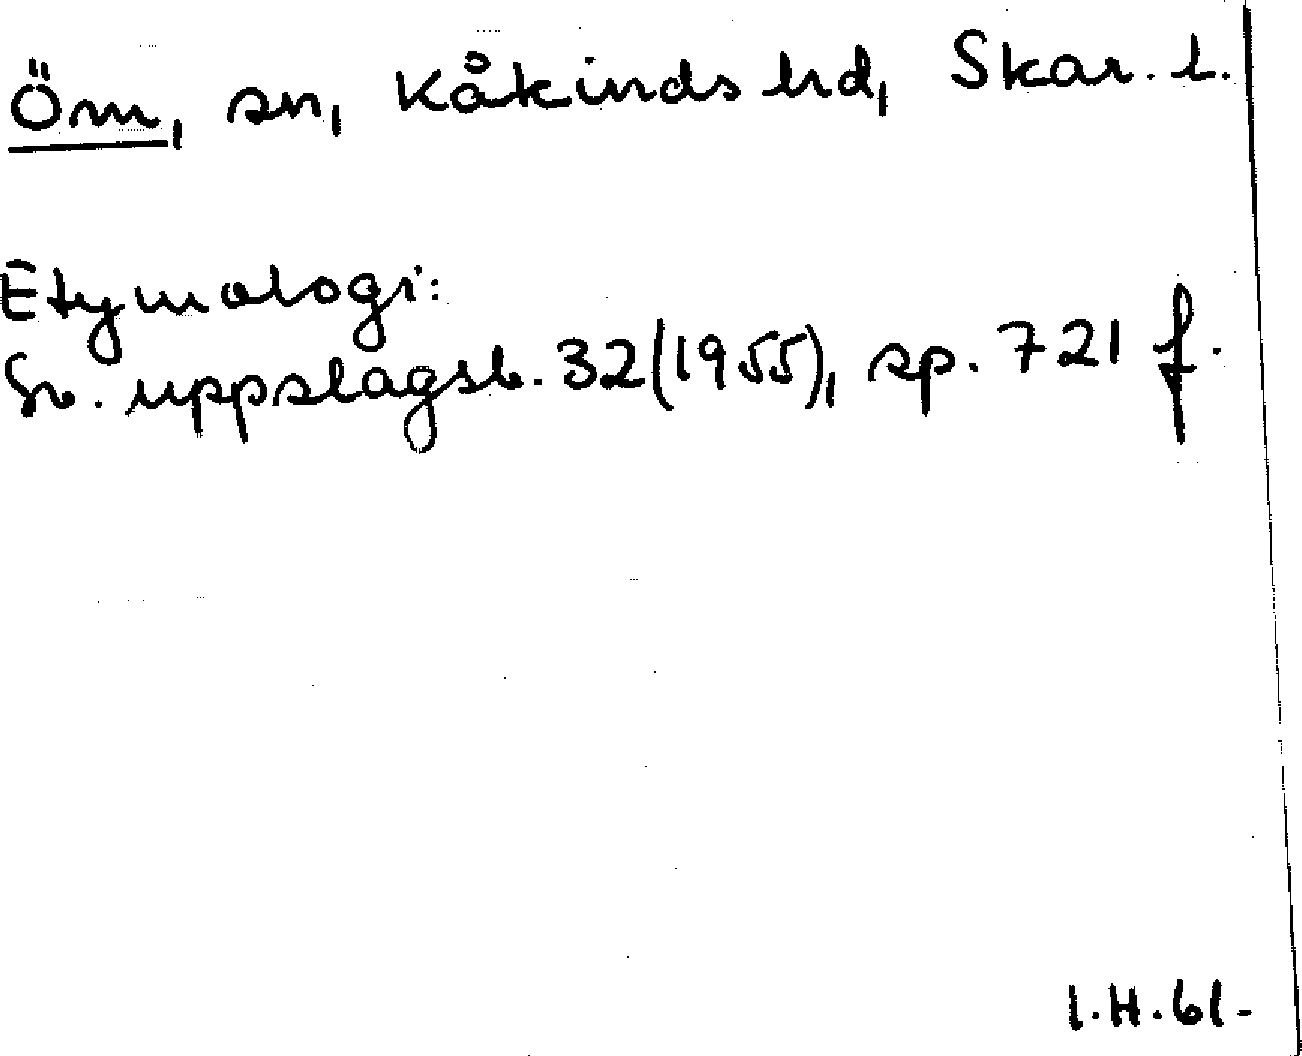 Öm, sn, Kåkinds hd, Skar. l.
Etymologi:
Sv. uppslagsb. 32(1955), sp. 721 f.
I.H.61-